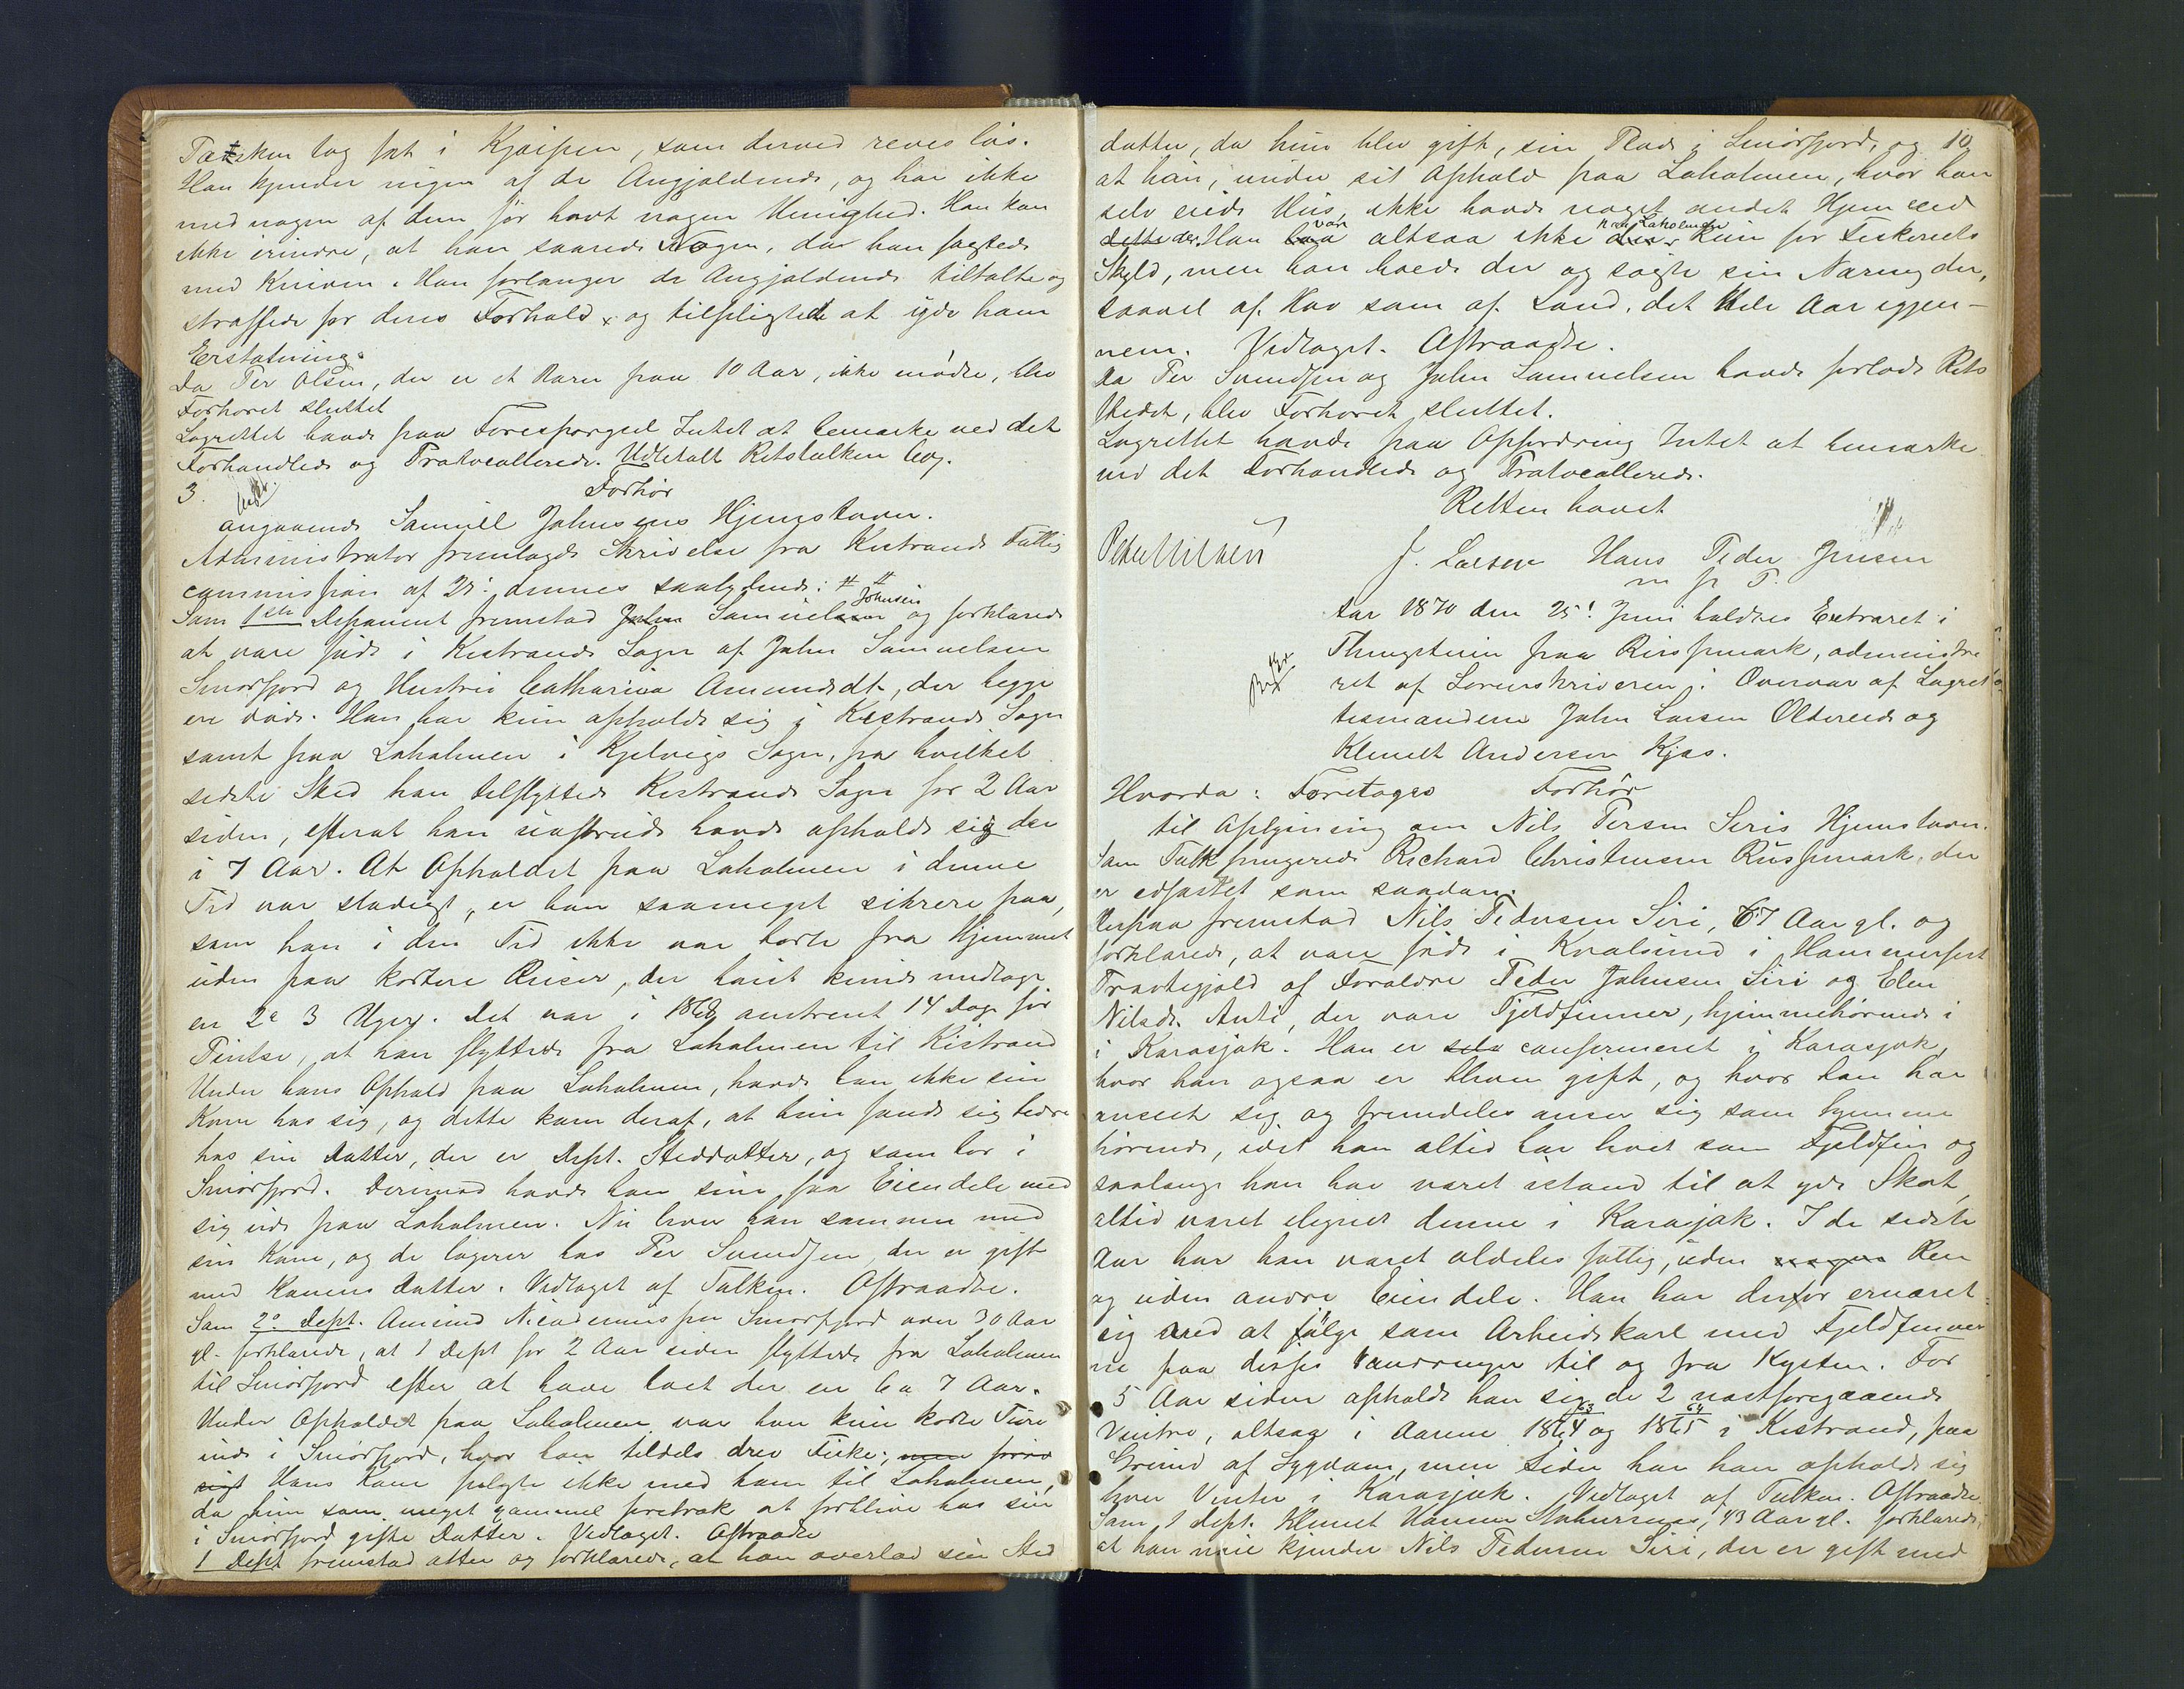 Tasken tog fat i Kjæppen, som derved reves løs.
Han kjender ingen af de Angjældende, og har ikke
med nogen af dem før havt nogen Uenighed. Han kan
ikke erindre, at han saarede Nogen, da han fægtede
med Kniven. Han forlanger de Angjældende tiltalte og
straffede for deres Forhold, og tilpligtede at yde ham
Erstatning.
Da Per Olsen, der er et Barn paa 10 Aar, ikke mødte, blev
Forhøret sluttet
Lagrettet havde paa Forespørgsel Intet at bemærke ved det
Forhandlede og Protocollerede. Udbetalt Retstolken
3. Forhør
angaaende Samuel Johnsens Hjemstavn.
Administrator fremlagde Skrivelse fra Kistrands Fattig
commission af 25: dennes saalydende: # #
Som 1ste Deponent fremstod John Samuelsen Johnsen og forklarede
at være født i Kistrands Sogn af John Samuelsen
Smørfjord og Hustru Catharina Amundsdt., der begge
ere døde. Han har kun opholdt sig i Kistrands Sogn
samt paa Lakolmen i Kjelvigs Sogn, fra hvilket
sidste Sted han tilflyttede Kistrands Sogn for 2 Aar
siden, efterat han uafbrudt havde opholdt sig der
i 7 Aar. At Opholdet paa Lakolmen i denne
Tid var stadigt, er han saameget sikrere paa,
som han i den Tid ikke var borte fra Hjemmet
uden paa kortere Reiser, der høist kunde medtage
en 2 a 3 Uger. Det var i 1868 omtrent 14 Dage før
Pintse, at han flyttede fra Lakolmen til Kistrand
Under hans Ophold paa Lakolmen, havde han ikke sin
Kone hos sig, og dette kom deraf, at hun fandt sig bedre
hos sin Datter, der er Dept. Steddatter, og som bor i
Smørfjord. Derimod havde han sine faa Eiendele med
sig ude paa Lakolmen. Nu lever han sammen med
sin Kone, og de logerer hos Per Svendsen, der er gift
med Konens Datter. Vedtaget af Tolken. Aftraadte.
Som 2° Dept. Amund Nicodemussen Smørfjord over 30 Aar
gl. forklarede, at 1 Dept for 2 Aar siden flyttede fra Lakolmen
til Smørfjord efter at have boet der en 6 a 7 Aar.
Under Opholdet paa Lakolmen var han kun korte Ture
inde i Smørfjord, hvor han tildels drev Fiske; men
Hans Kone fulgte ikke med ham til Lakolmen,
da hun som meget gammel foretrak at forblive hos sin
i Smørfjord gifte Datter. Vedtaget. Aftraadte
1 Dept fremstod atter og forklarede, at han overlod sin Sted
datter, da hun blev gift, sin Plads i Smørfjord, og 10
at han, under sit Ophold paa Lakolmen, hvor han
selv eiede Hus, ikke havde noget andet Hjem end
dette der. Han boa var altsaa ikke der paa Lakolmen kun for Fiskeriets
Skyld, men han boede der og søgte sin Næring der,
saavel af Hav som af Land, det hele Aar igjen-
nem. Vedtaget. Aftraadte.
Da Per Svendsen og John Samuelsen havde forladt Rets
stedet, blev Forhøret sluttet.
Lagrettet havde paa Opfordring Intet at bemærke
ved det Forhandlede og Protocollerede.
Retten hævet
Peder Nilsen J. Larsen Hans Peder Jensen
m p P.
Aar 1870 den 25: Juni holdtes Extraret i
Thingstuen paa Russemark, administre
ret af Sorenskriveren i Overvær af Lagret
tesmændene John Larsen Oldereid og
Klemet Andersen Kjæs.
Hvorda: Foretoges Forhør
til Oplysning om Nils Persen Siris Hjemstavn.
Som Tolk fungerede Richard Christensen Russemark, der
er edfæstet som saadan.
Derpaa fremstod Nils Pedersen Siri, 67 Aar gl. og
forklarede, at være født i Kvalsund i Hammerfest
Præstegjæld af Forældre Peder Johnsen Siri og Elen
Nilsdt. Anti, der vare Fjeldfinner, hjemmehørende i
i Karasjok. Han er selv confirmeret i Karasjok,
hvor han ogsaa er bleven gift, og hvor han har
anseet sig og fremdeles anser sig som hjemme
hørende, idet han altid har levet som Fjeldfin og
saalænge han har været istand til at yde Skat,
altid været ilignet denne i Karasjok. I de sidste
Aar har han været aldeles fattig, uden nogen Ren
og uden andre Eiendele. Han har derfor ernæret
sig med at følge som Arbeidskarl med Fjeldfinner
ne paa disses Vandringer til og fra Kysten. For
5 Aar siden opholdt han sig de 2 næstforegaaende
Vintre, altsaa i Aarene 1864 63 og 1865 64 i Kistrand, paa
Grund af Sygdom, men siden har han opholdt sig
hver Vinter i Karasjok. Vedtaget af Tolken. Aftraadte.
Som 1 Dept. Klemet Hansen 43 Aar gl. forklarede,
at han nøie kjender Nils Pedersen Siri, der er gift med